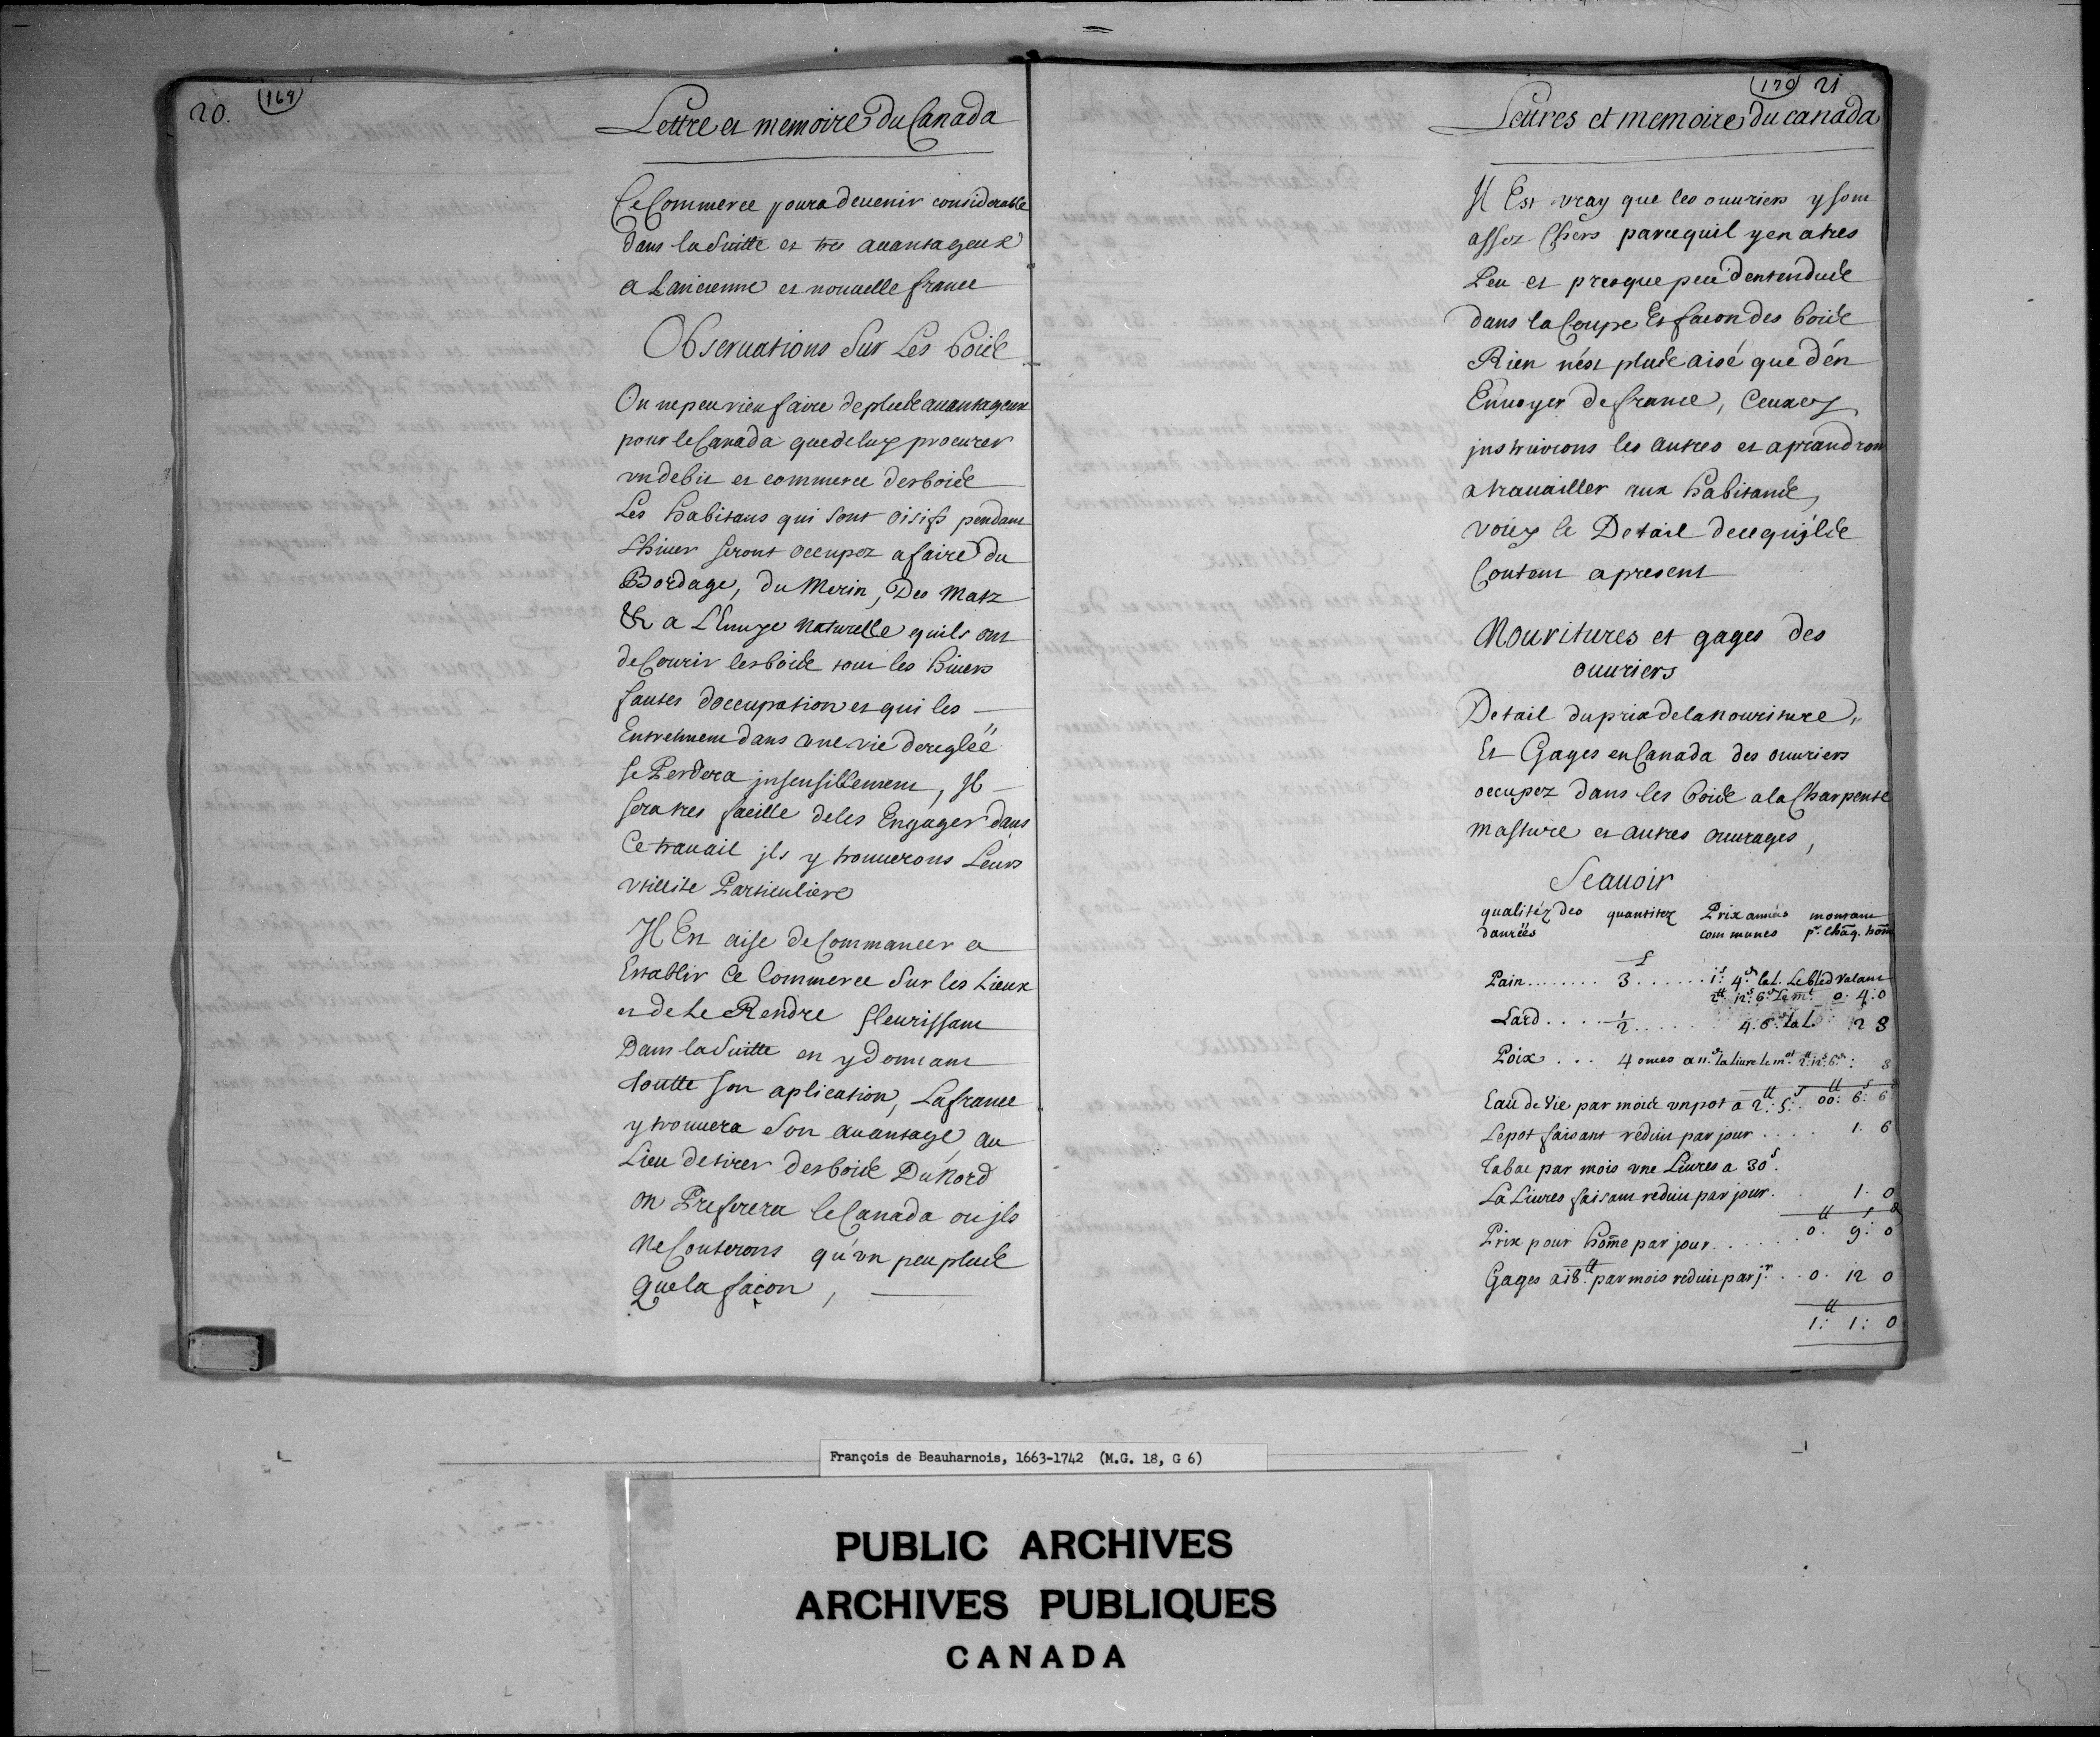 20.
(169)
Lettre et memoire Du Canada
Ce Commerce poura devenir considerable
dans la Suitte et tres avantageux
a Lancienne et nouvelle france
Observations Sur Les boids
On ne peu rien faire de pluds avantageux
pour le Canada que de luy procurer
vn debit et commerce des boids
Les habitans qui sont oisifs pendant
Lhiver seront occupez a faire du
Bordage, du Merin, Des Matz
& a L'Envye naturelle quils ont
de Courir les boids tous les hivers
fautes doccupation et qui les
Entretienent dans une vie dereglée
se Perdera insensiblement, Il
sera tres facille de les Engager dans
Ce travail ils y trouverons Leurs
vtillite Particuliere
Il Est aise de Commancer a
Establir Ce Commerce Sur les Lieux
et de Le Rendre fleurissant
Dans la Suitte en y donnant
toutte son aplication, La france
y trouvera Son avantage, au
Lieu de tirer des boids Du Nord
on Preferera le Canada ou ils
ne Couterons qu'vn peu pluds
Que la facon,
(170) 21
Lettres et memoire du canada
Il Est vray que les ouvriers y sont
assez Chers parcequil y en a tres
Peu et presque peu d'entenduds
dans la Coupe Et facon des boids
Rien n'est pluds aisé que d'en
Envoyer de france, Ceuxcy
instruirons les autres et aprandront
a travailler aux habitands,
voicy le Detail de ce qu'ils
Coutent apresent
Nouritures et gages des
ouvriers
Detail du prix de la Nouriture,
Et Gages en Canada des ouvriers
occupez dans les boids a la Charpente
masture et autres ouvrages,
Scavoir
qualitéz des quantitez Prix années montant
danrées communes pr. chaq. hom̃e
Pain........ 3 ...... 1s: 4d la l. Le bled valant
2tt 12s 6d Le mt. 0. 4: 0
Lard.... 1/2 ..... 4. 6. la l. 2 3
Poix... 4 onces a 11d la livre le mot 2tt: 12s 6d: 3
Eau de Vie par moids vn pot a 2tt: 5s: 00: 6: 6
Le pot faisant reduit par jour.... 1. 6
Tabac par mois vne Livres a 30s.
La Livres faisant reduit par jour. 1. 0
Prix pour hom̃e par jour...... 0. 9: 0
Gages a 18tt. par mois reduit par jr... 0. 12 0
1: 1: 0
François de Beauharnois, 1663-1742 (M.G. 18, G 6)
PUBLIC ARCHIVES
ARCHIVES PUBLIQUES
CANADA